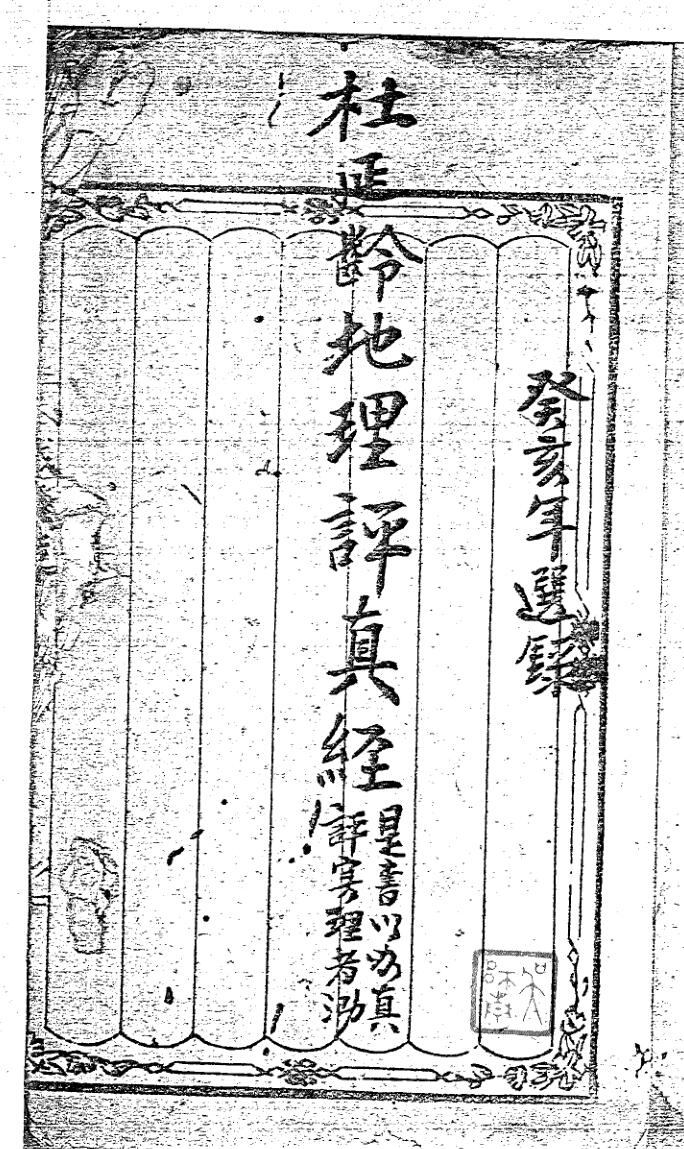 癸亥年選集
杜延齡地理評真経
是書以為真
評寔理者